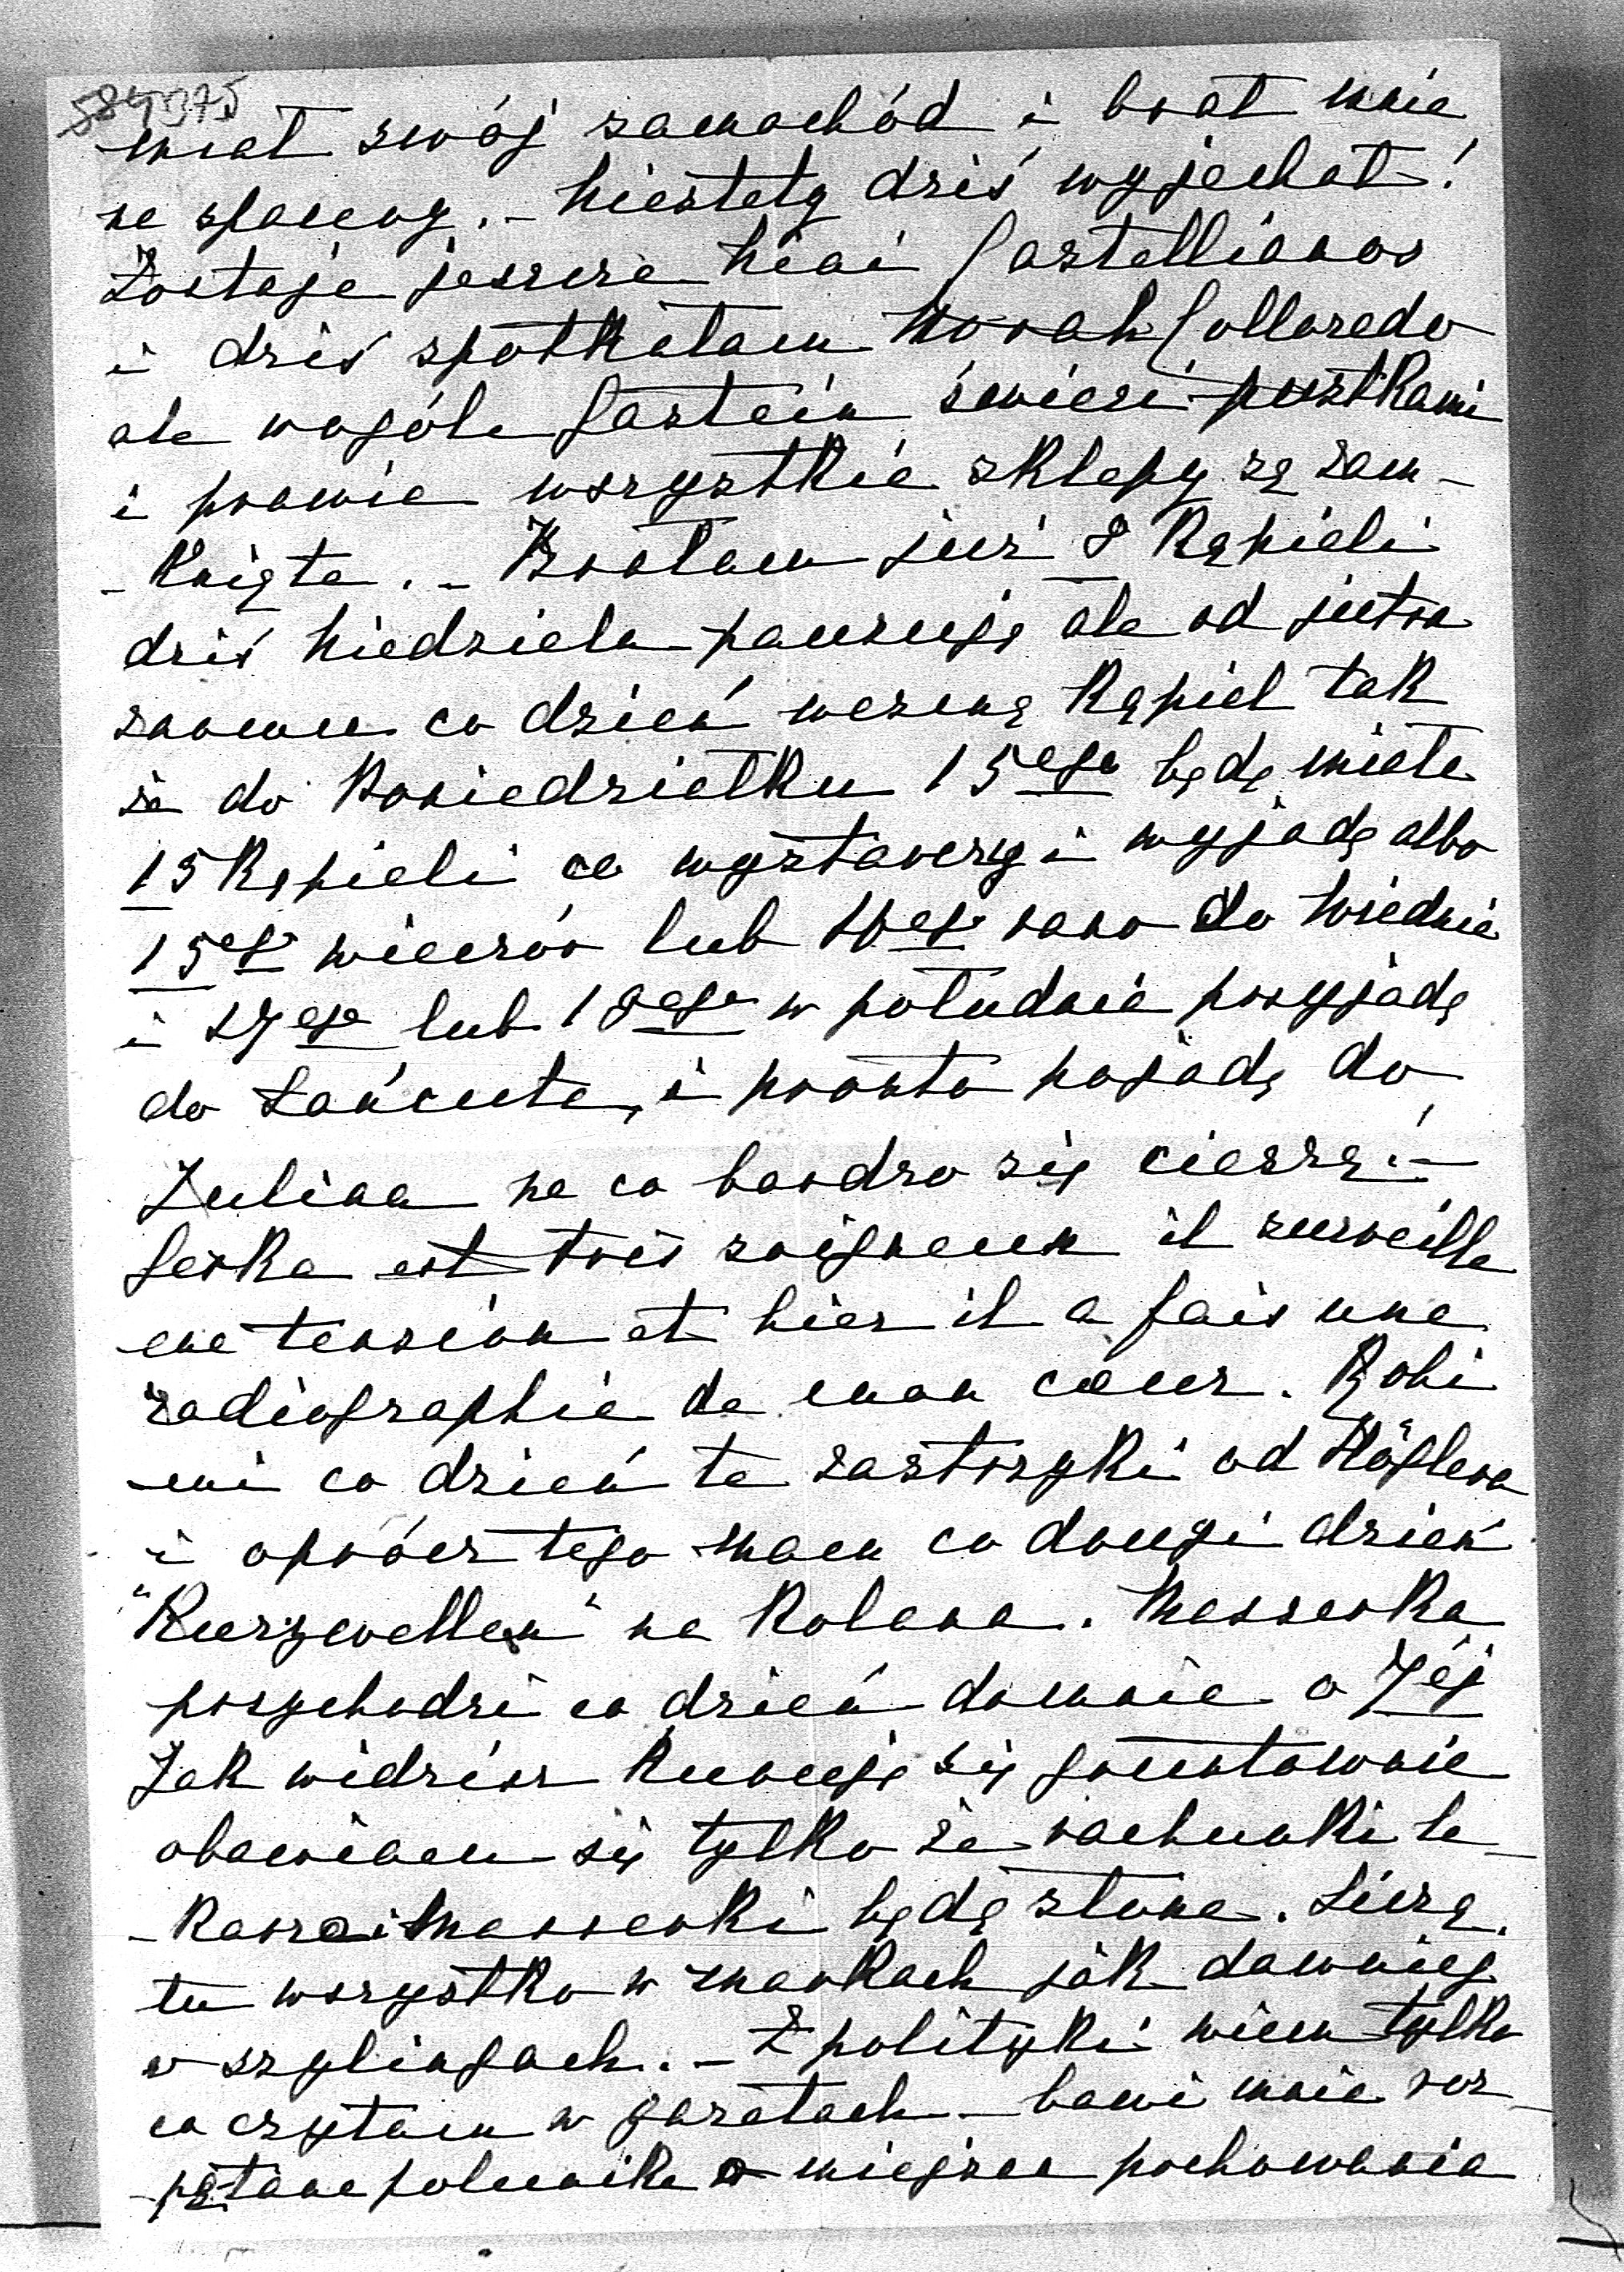 miał swój samochód i brał mnie
na spacery. - Niestety dziś wyjechał!
Zostaje jeszcze Castellianos
i dziś spotkałam Norah Colloredo
ale wogóle Gastein świeci pustkami
i prawie wszystkie sklepy są zam-
-knięte. - Brałam już 8 kąpieli
dziś Niedziela pauzuję ale od jutra
znowu co dzień wezmę kąpiel tak
że do Poniedziałku 15ego będę miała
15 kąpieli co wystarczy i wyjadę albo
15ego wieczór lub 16ego rano do Wiednia
i 17ego lub 18ego w południe przyjadę
do Łańcuta, i prosto pojadę do
Julina na co bardzo się cieszę! -
Gerke est très soigneux il surveille
ma tension et hier il a fais une
radiographie de mon cœur. Robi
mi co dzień te zastrzyki od Höglera
i oprócz tego mam co drugi dzień
"Kurzwellen" na kolana. Masserka
przychodzi co dzień domnie o 7ej
Jak widzisz kuruję się gruntownie
obawiam się tylko że rachunki le-
-karza i masserki będą słone. Liczą
tu wszystko w markach jak dawniej
w szylingach. - Z polityki wiem tylko
co czytam w gazetach - bawi mnie roz-
-pętana polemika o miejsca pochowania